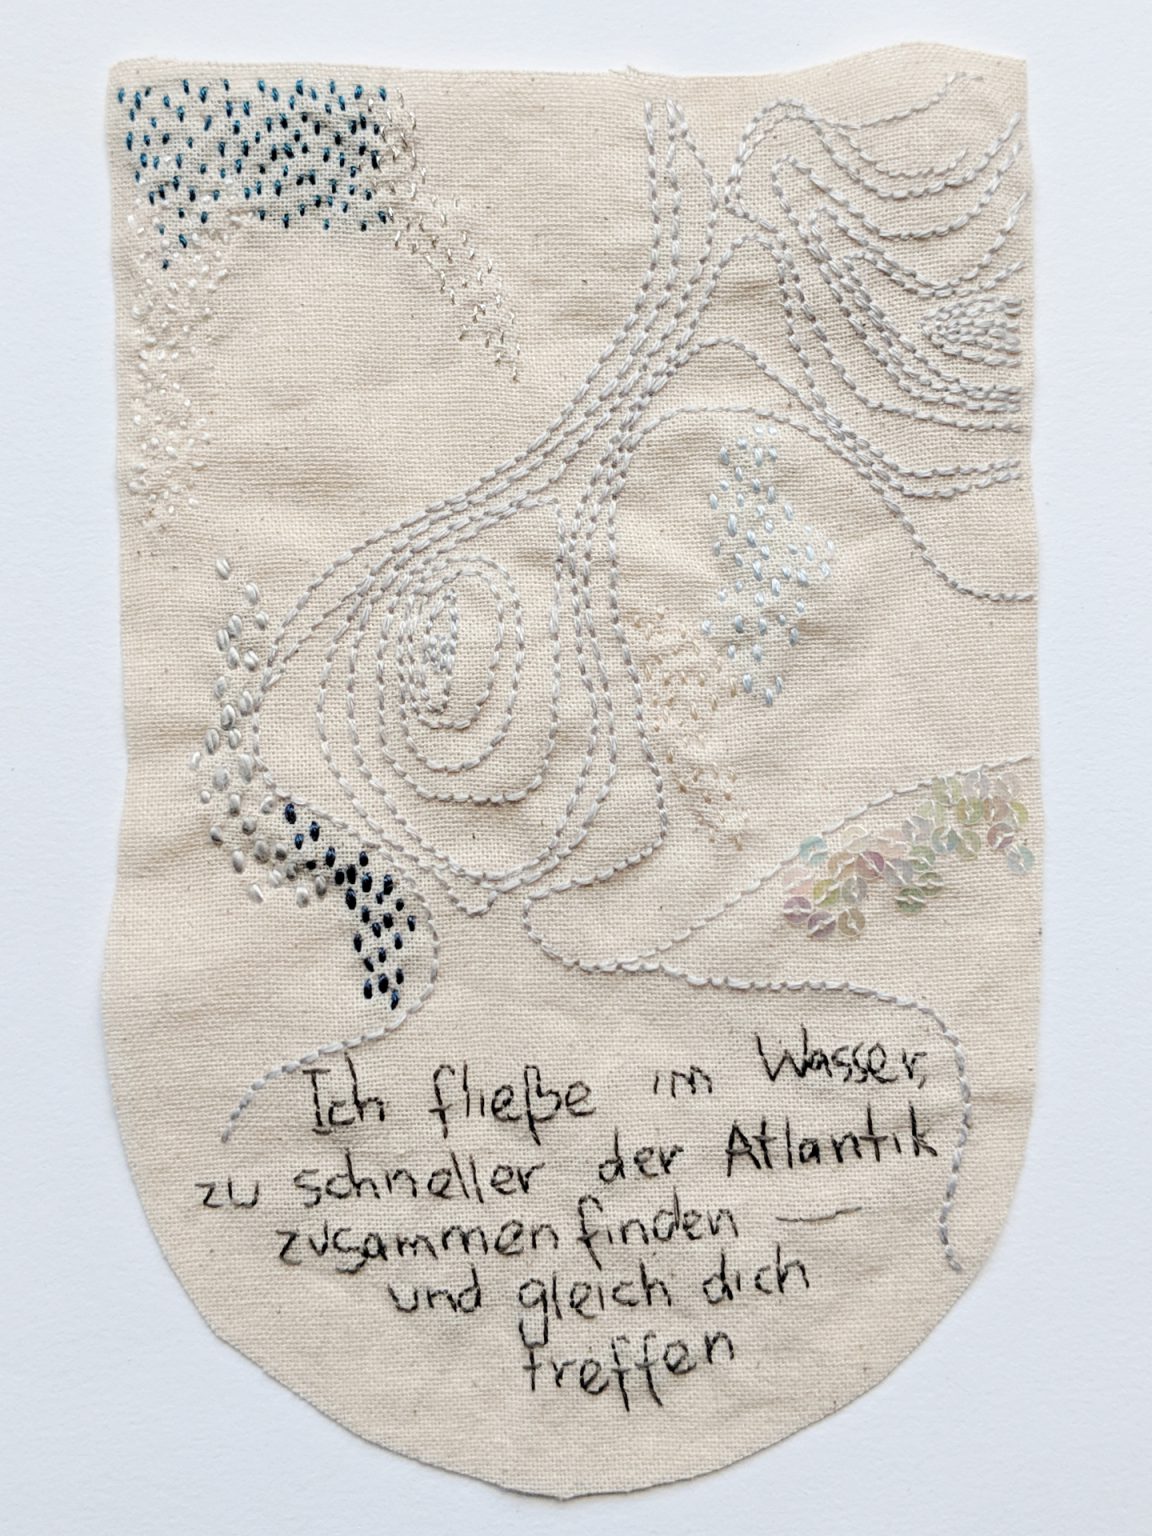 Ich fließe im Wasser,
zu schneller der Atlantik
zusammenfinden —
und gleich dich
treffen